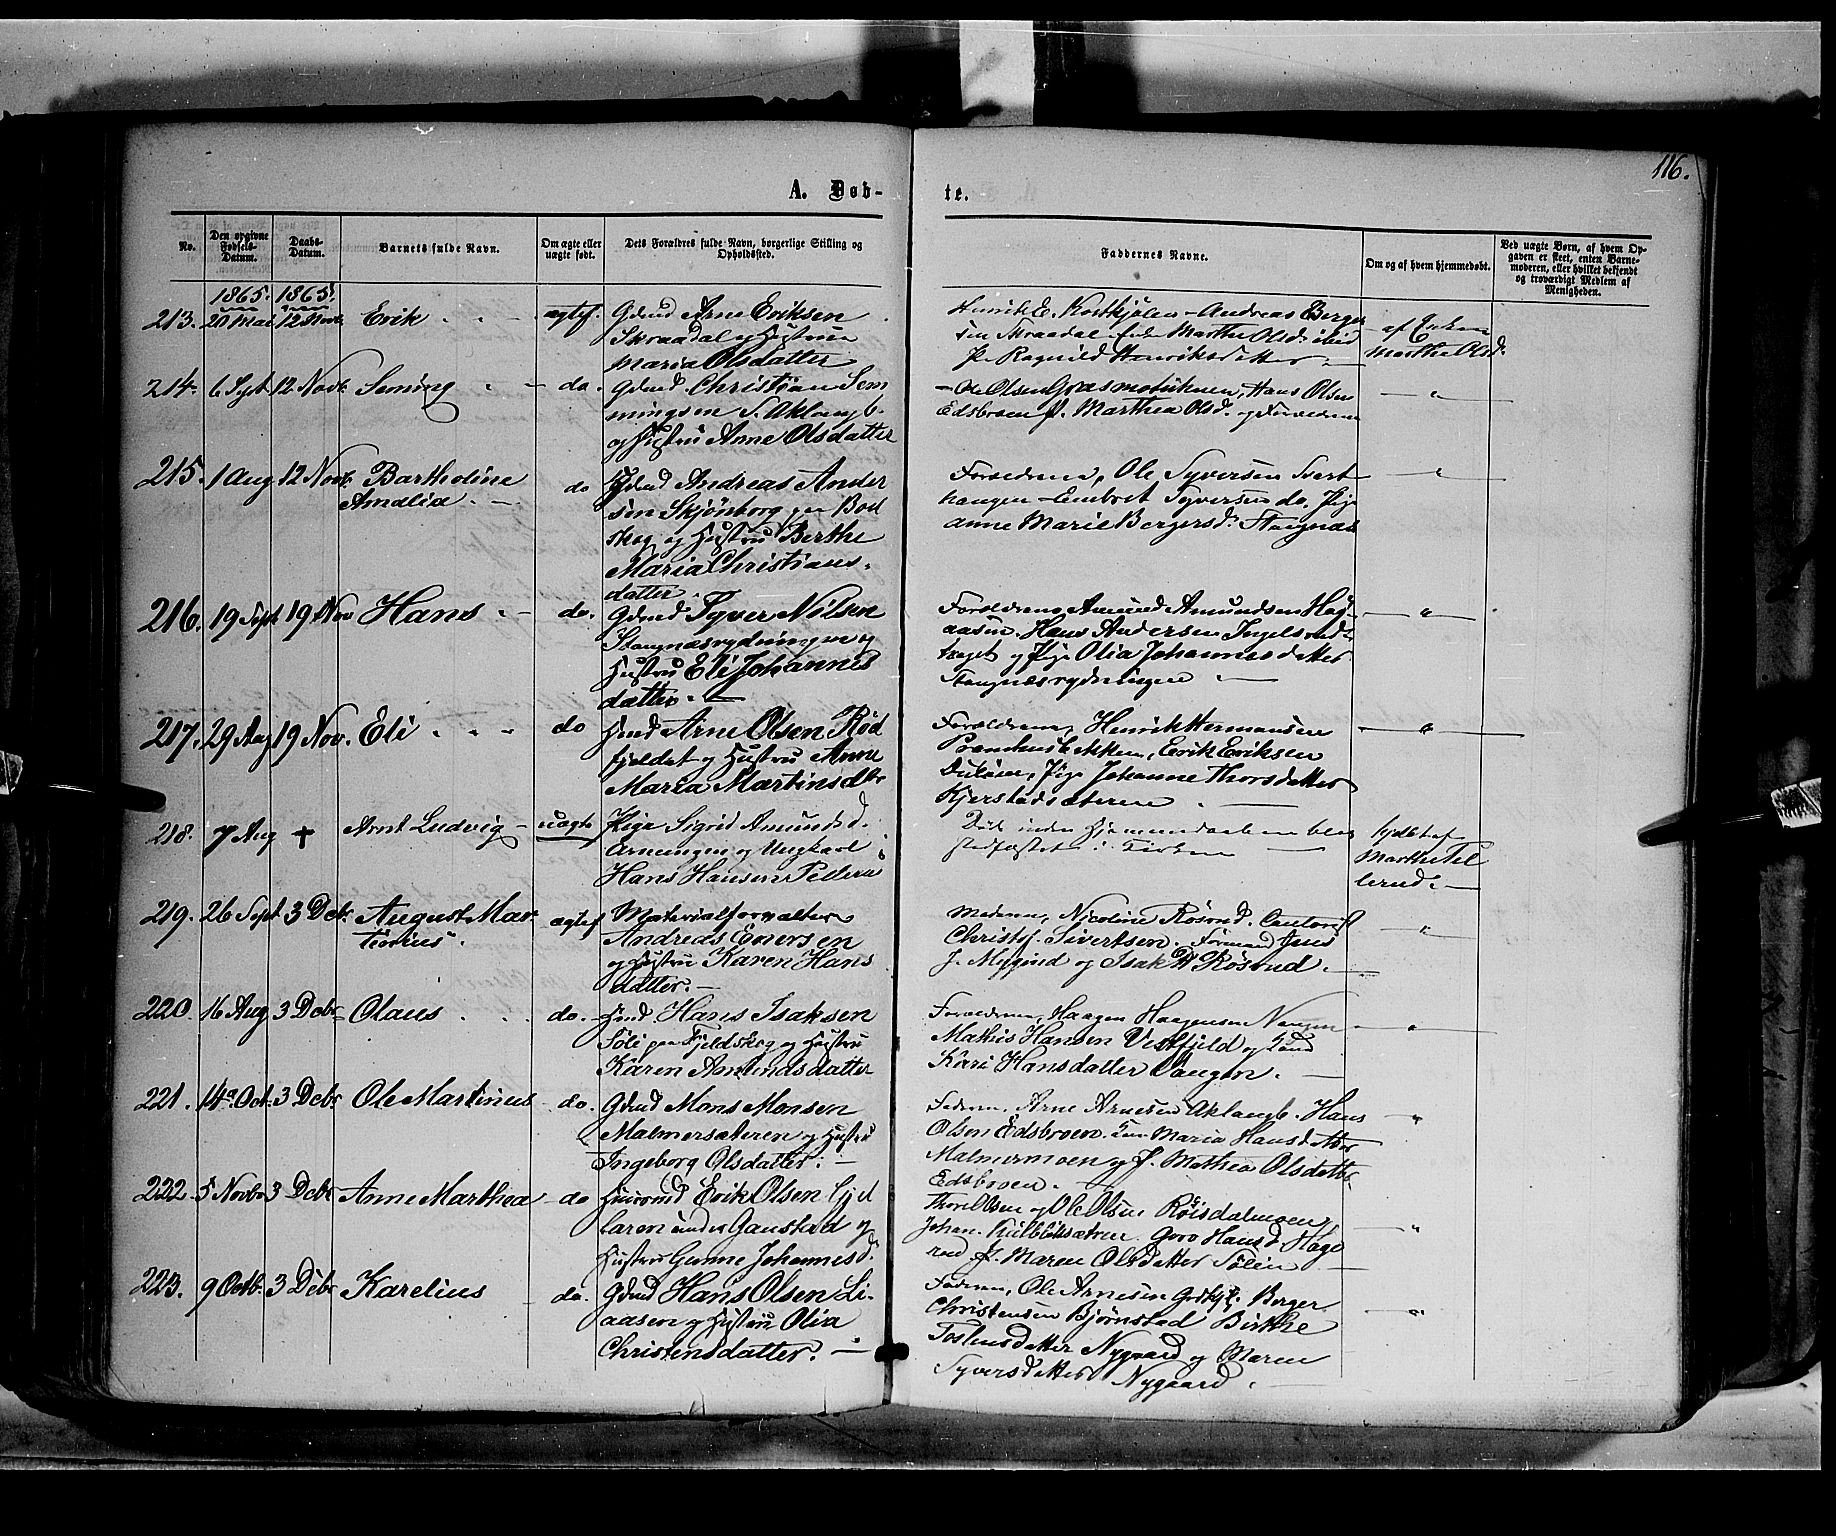 116.
A. Døb-
te.
No.
Den opgivne Fødsels-Datum.
Daabs-Datum.
Barnets fulde Navn.
Om ægte eller uægte født.
Dets Forældres fulde Navn, borgerlige Stilling og Opholdssted.
Faddernes Navne.
Om og af hvem hjemmedøbt.
Ved uægte Børn, af hvem Op-
gaven er skeet, enten Barne-
moderen, eller hvilket bekjendt
og troværdigt Medlem af
Menigheden.
1865. 1865.
213. 20 Mai 12 Novb. Erik ægtef. Gdmd Arne Eriksen
Skraadal og Hustrue
Maria Olsdatter
Andreas Berger
sen Skraadal Enke Marthe Olsd. ibid
P. Ragnild Henriksdatter
af Enken
Marthe Olsd.
214. 6 Sept 12 Novb. Seming do. Gdmd Christian Sem
mingsen S. Aklangb.
og Hustru Anne Olsdatter
Ole Olsen Hans Olsen
Edsbroen P. Marthea Olsd. og Forældrene
215. 1 Aug 12 Novb. Bartholine
Amalia do Andreas Ander
sen Skjønborg paa Bod
skog og Hustru Berthe
Maria Christians-
datter.
Forældrene, Ole Syversen Svert
haugen - Embret Syversen do. Pige
Anne Marie Bergersd. Stangnæs
216. 19 Sept 19 Nov Hans do. Gdmd Syver Nilsen
Stangnæsrydningen og
Hustru Eli Johannes
datter.
Forældrene Amund Amundsen Hag
aasen. Hans Andersen Ingelsrud-
haget og Pige Olia Johannesdatter
Stangnæsrydningen
217. 29 Aug 19 Nov. Eli do Arne Olsen Rød
fjeldet og Hustru Anne
Maria Martinsdtr
Forældrene, Henrik Hermansen
Pramhusbekken, Erik Eriksen
Pige Johanne Thorsdatter
Kjerstadsæteren
218. 7 Aug + Arnt Ludvig uægte Pige Sigrid Amundsd.
Arneengen og Ungkarl
Hans Hansen Pellerud
Død inden Hjemmedaaben blev
stadfæstet i Kirken
hjdbt af
Marthe Tel
lerud.
219. 26 Sept 3 Debr August Mar
tinius ægtef Materialforvalter
Andreas Enersen
og Hustru Karen Hans
datter.
Moderen, Nicoline Røsrud. Contorist
Christof. Sivertsen. Formand Jens
J. Mygind og Isak Røsrud.
220. 16 Aug 3 Debr Olaus do. Hmd. Hans Isaksen
Føli paa Fjeldskog og Hustru
Karen Amundsdatter
Forældrene, Haagen Haagensen Vangen
Mathis Hansen Vestfjeld og
Kari Hansdatter Vangen.
221. 14 Oct. 3 Debr Ole Martinus do. Gdmd Mons Monsen
Malmersæteren og Hustru
Ingeborg Olsdatter.
Faderen, Arne Arnesen Aklangb. Hans
Olsen Edsbroen. Maria Hansdatter
Malmermoen og P. Mathea Olsdatter
Edsbroen.
222. 5 Novbr 3 Debr Anne Marthea do Erik Olsen
under Gaustad og
Hustru Gunne Johannesd.
Thore Olsen og Ole Olsen Røisdalmoen
Johan. Goro Hansd. Hage
rud P. Maren Olsdatter Følien
223. 9 Octb. 3 Debr Karelius do. Gdmd Hans Olsen Li-
aasen og Hustru Olia
Christensdatter.
Faderen, Ole Arnesen Berger
Christensen Bjørnstad Birthe
Nygaard og Maren
Syversdatter Nygaard.